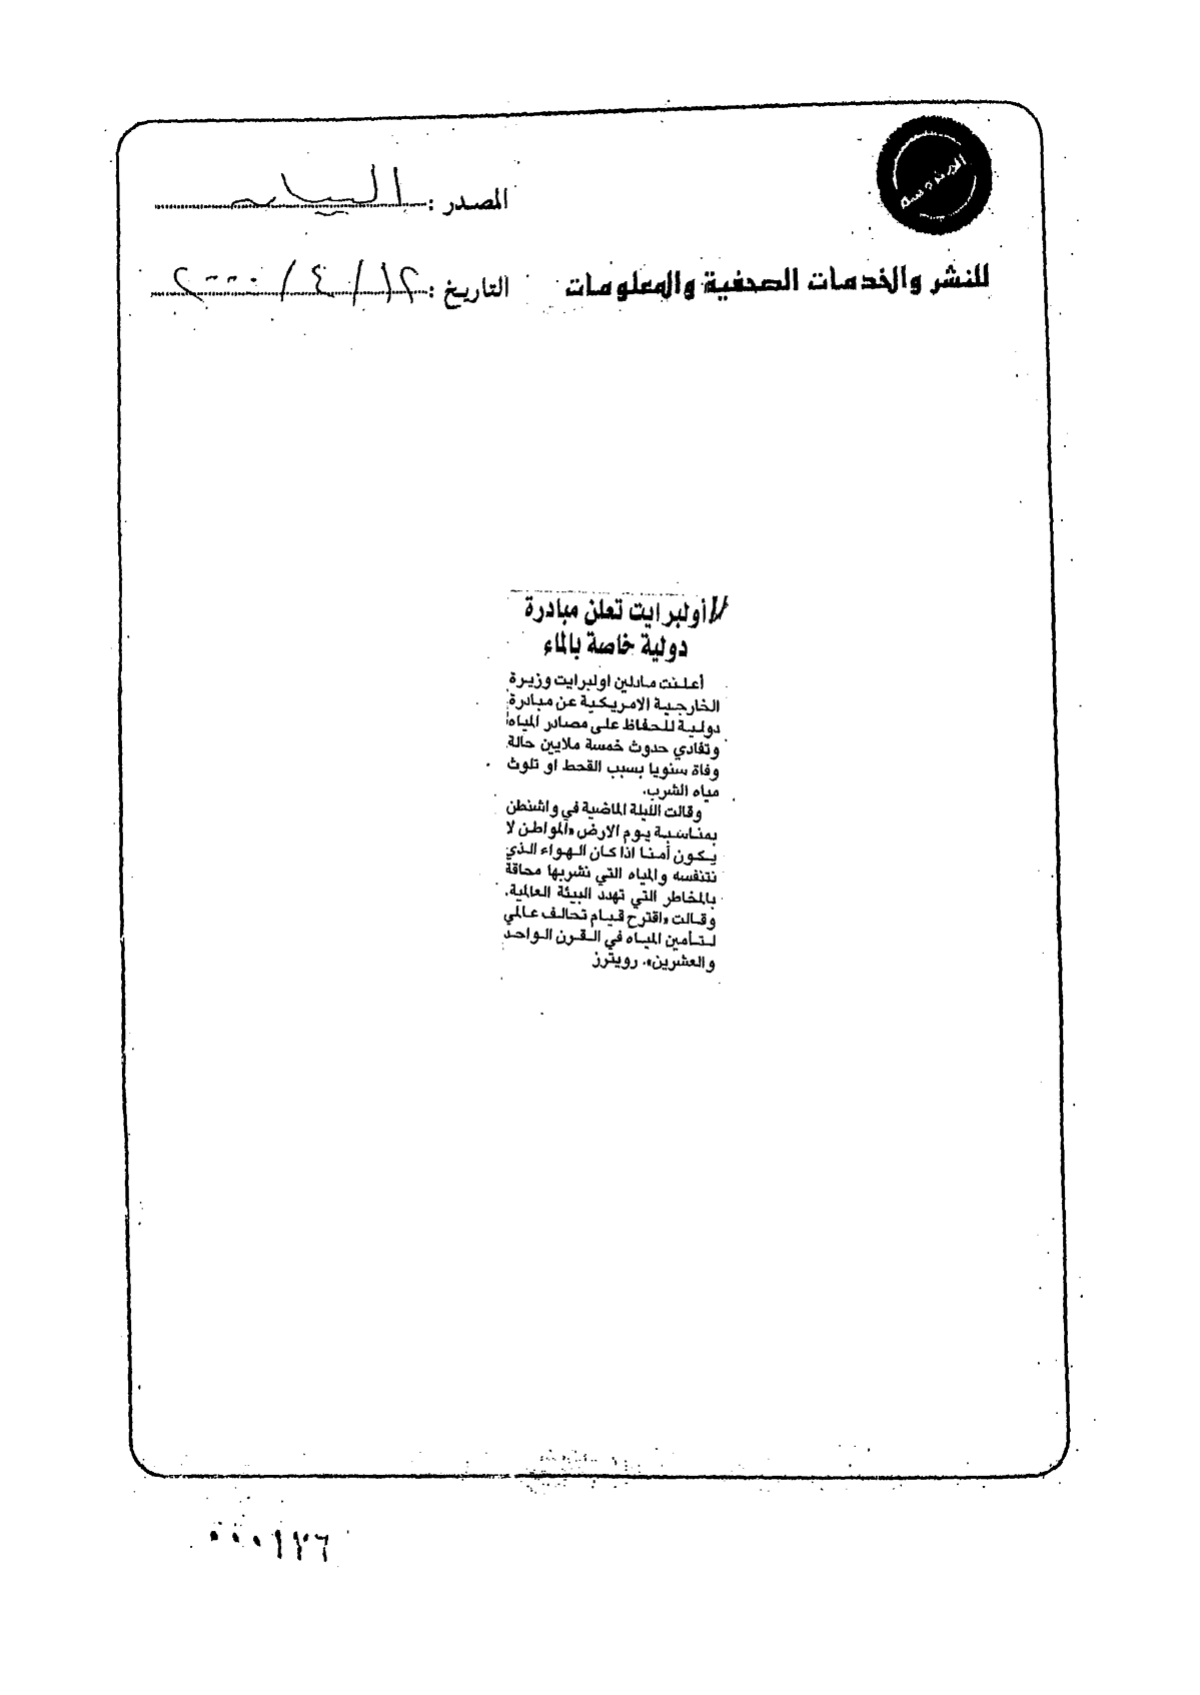 المصدر : البيان
للنشر والخدمات الصحفية والمعلومات التاريخ : ١٢ / ٤ / ٢٠٠٠
أولبرايت تعلن مبادرة
دولية خاصة بالماء
أعلنت مادلين اولبرايت وزيرة
الخارجية الامريكية عن مبادرة
دولية للحفاظ على مصادر المياه
وتفادي حدوث خمسة ملايين حالة
وفاة سنويا بسبب القحط او تلوث
مياه الشرب.
وقالت الليلة الماضية في واشنطن
بمناسبة يوم الارض «المواطن لا
يكون أمنا اذا كان الهواء الذي
نتنفسه والمياه التي نشربها محاقة
بالمخاطر التي تهدد البيئة العالمية.
وقالت «اقترح قيام تحالف عالمي
لتأمين المياه في القرن الواحد
والعشرين». رويترز
٠٠٠١٧٦